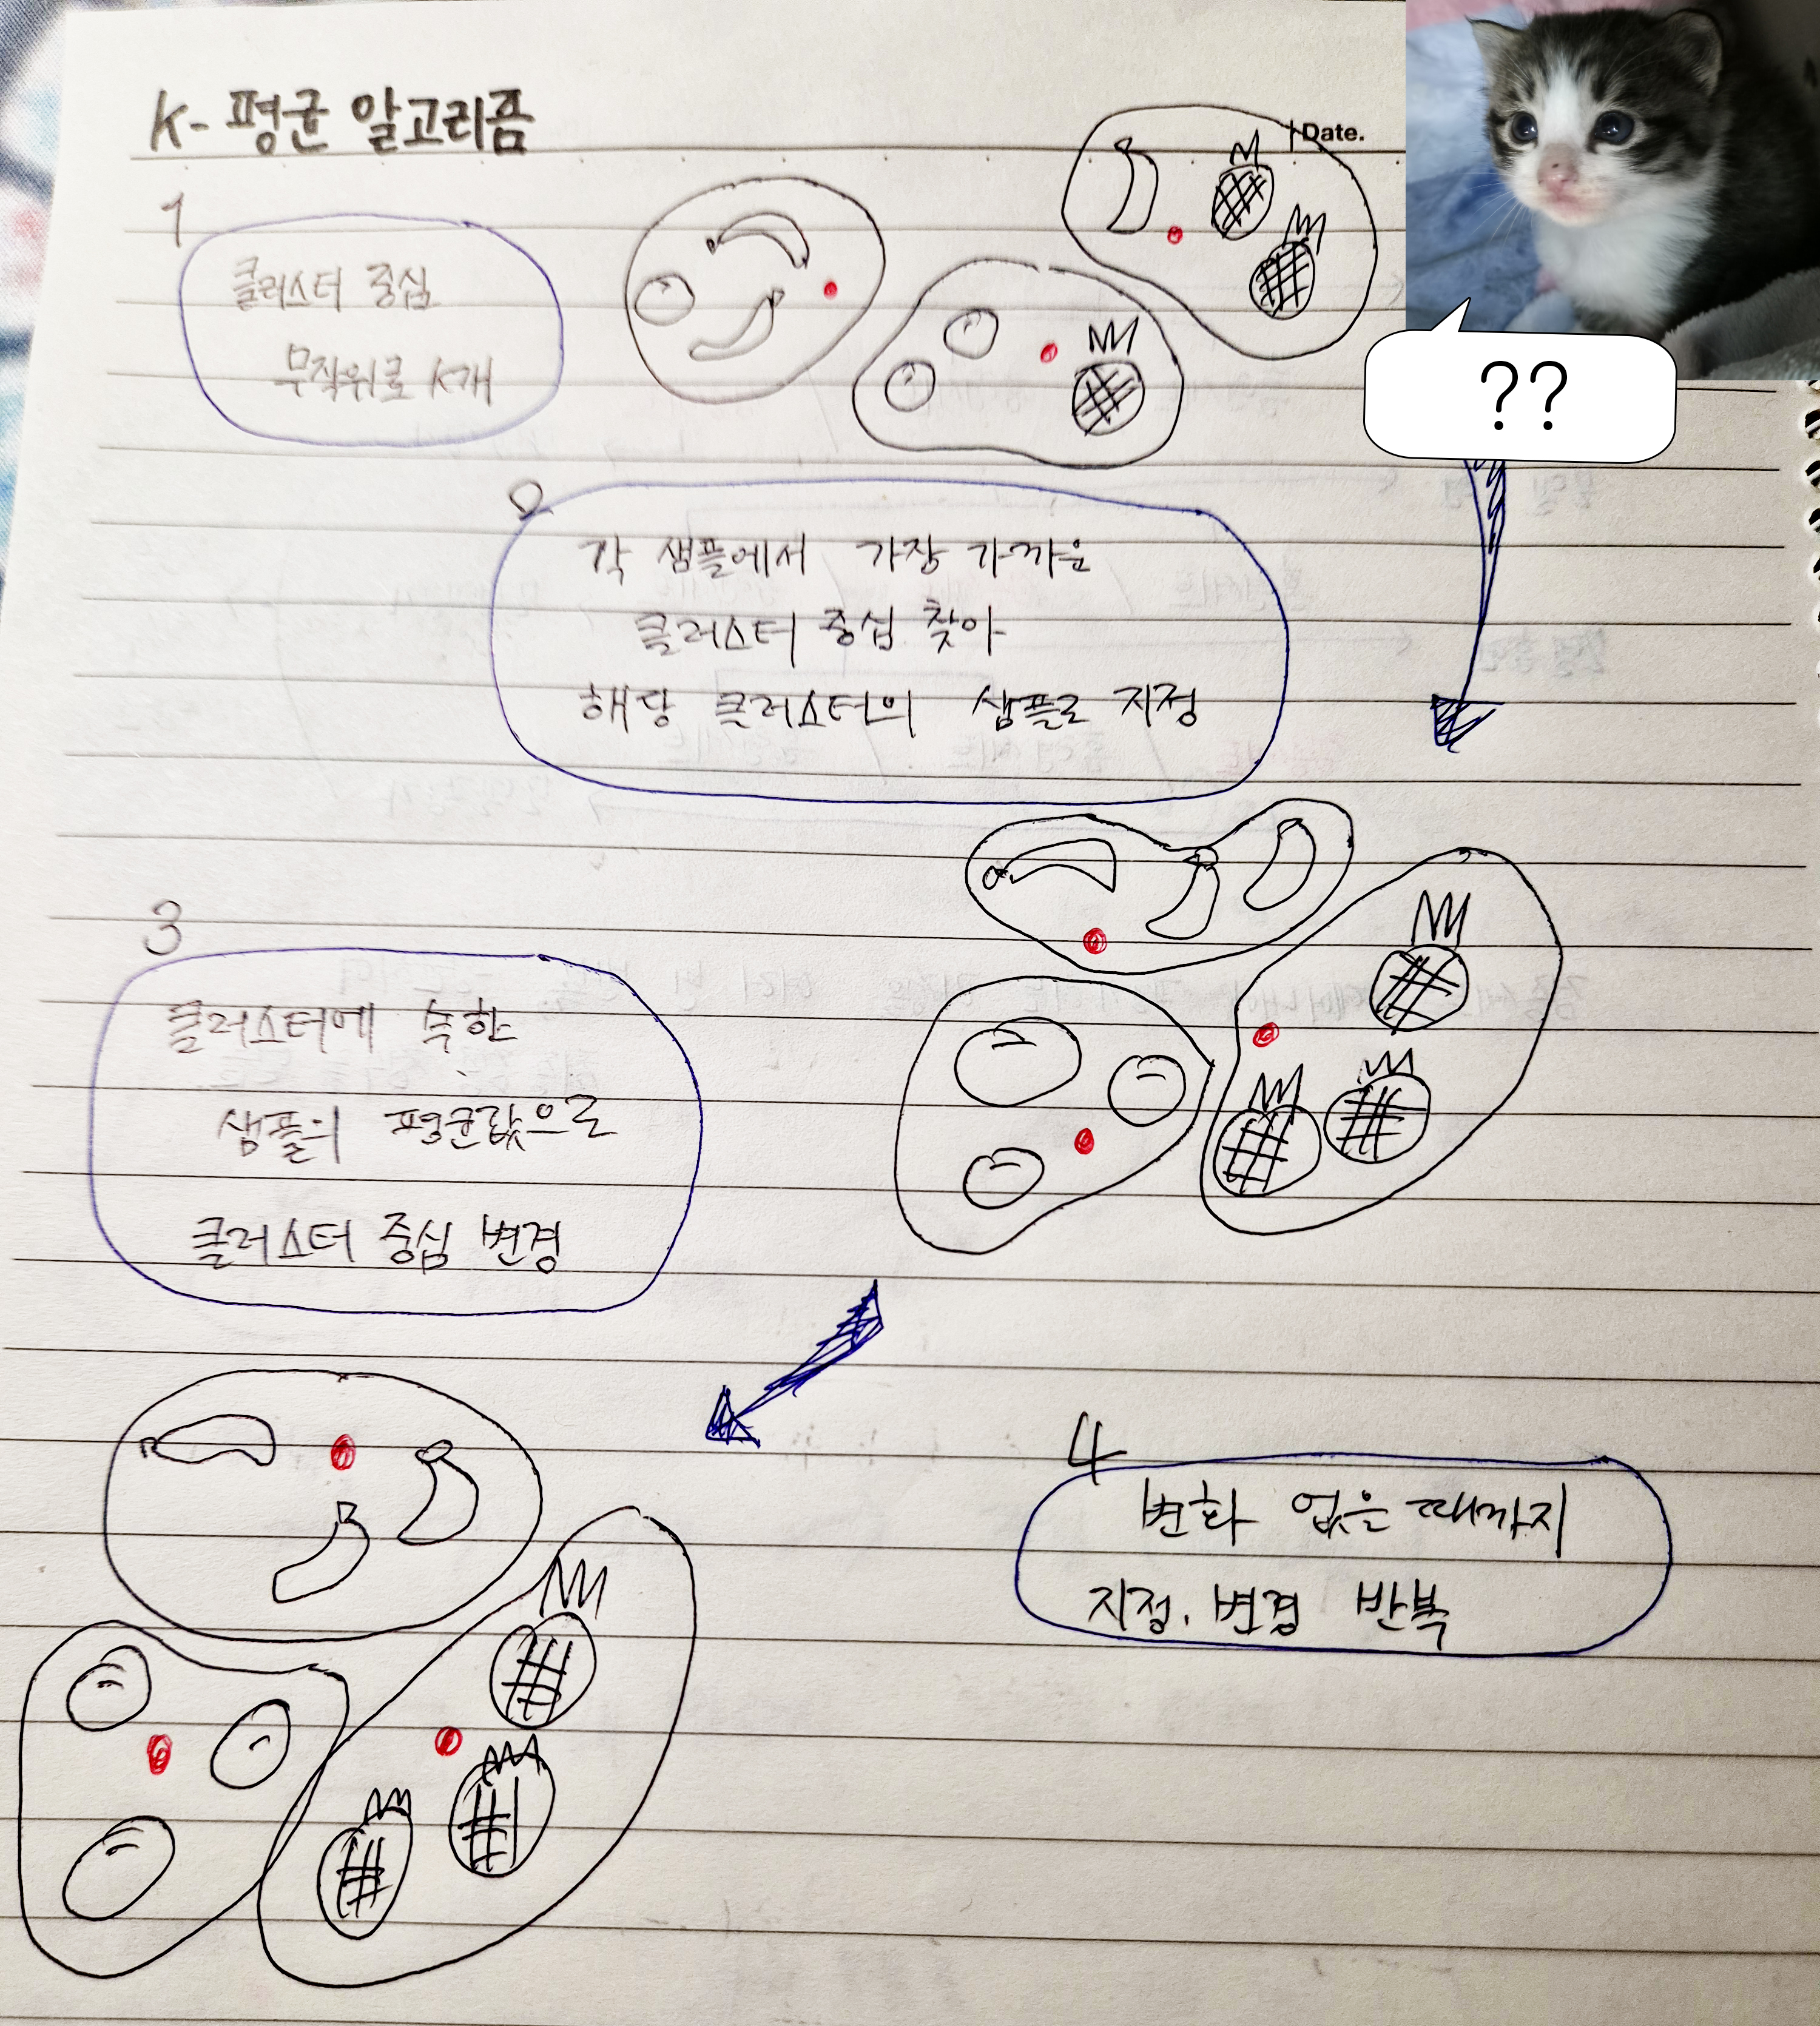 K- 평균 알고리즘
Date.
1
클러스터 중심
무작위로 서개
??
2
각 샘플에서 가장 가까운
클러스터 중심 찾아
해당 클러스터의 샘플로 지정
3
클러스터에 속한
샘플의 평균값으로
클러스터 중심 변경
4
변화 없을 때까지
지정, 변경 반복